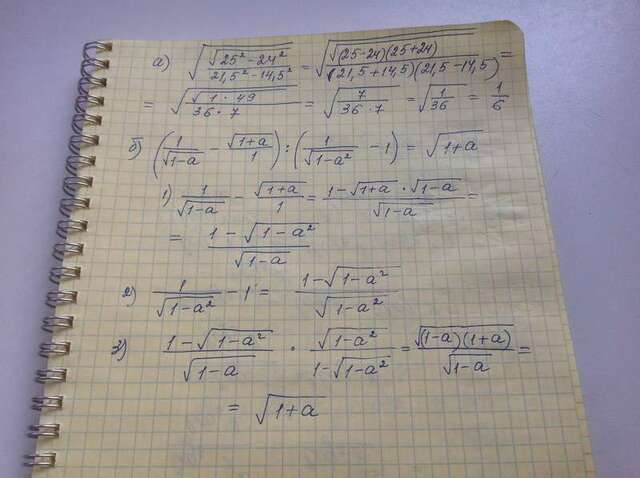 а) √(√(25² - 24²) / (21,5² - 14,5²)) = √(√((25-24)(25+24)) / ((21,5+14,5)(21,5-14,5))) =
= √(√(1 · 49) / (36 · 7)) = √(7 / (36 · 7)) = √(1/36) = 1/6
б) (1/√(1-a) - √(1+a)/1) : (1/√(1-a²) - 1) = √(1+a)
1) 1/√(1-a) - √(1+a)/1 = (1 - √(1+a) · √(1-a)) / √(1-a) =
= (1 - √(1-a²)) / √(1-a)
2) 1/√(1-a²) - 1 = (1 - √(1-a²)) / √(1-a²)
3) (1 - √(1-a²)) / √(1-a) · √(1-a²) / (1 - √(1-a²)) = √((1-a)(1+a)) / √(1-a) =
= √(1+a)